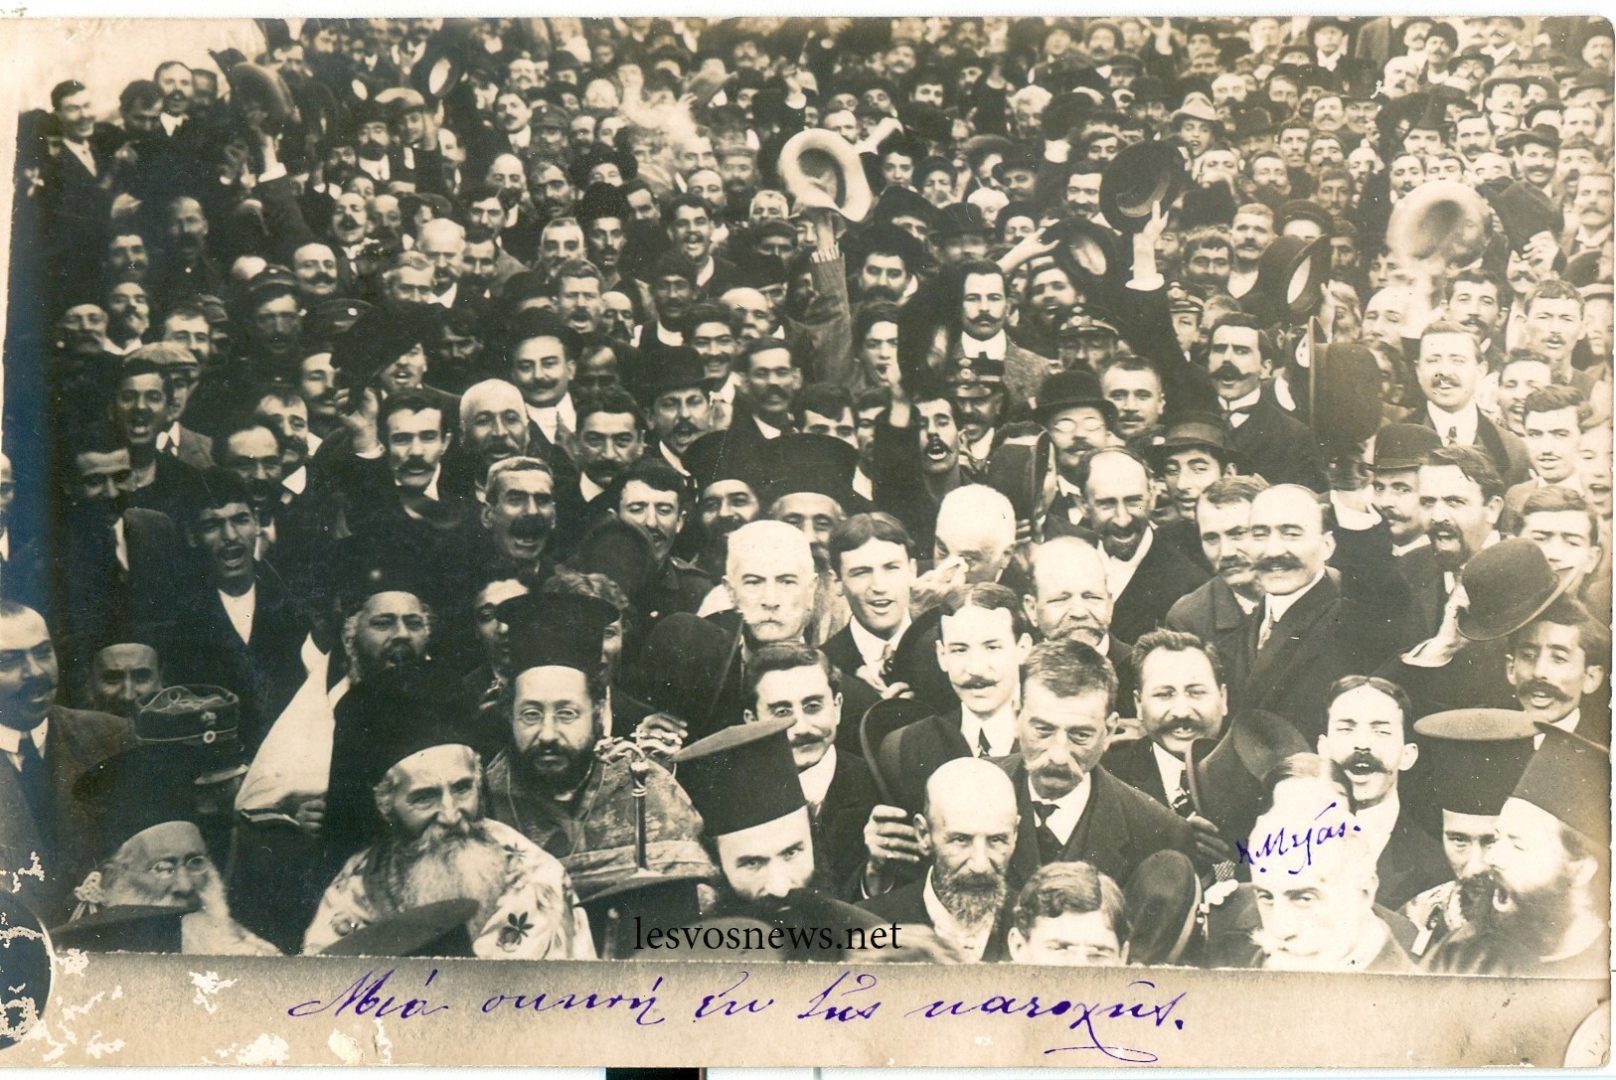 Κ. Μελάς.
lesvosnews.net
Μιά σκηνή ἐκ τῆς κατοχῆς.